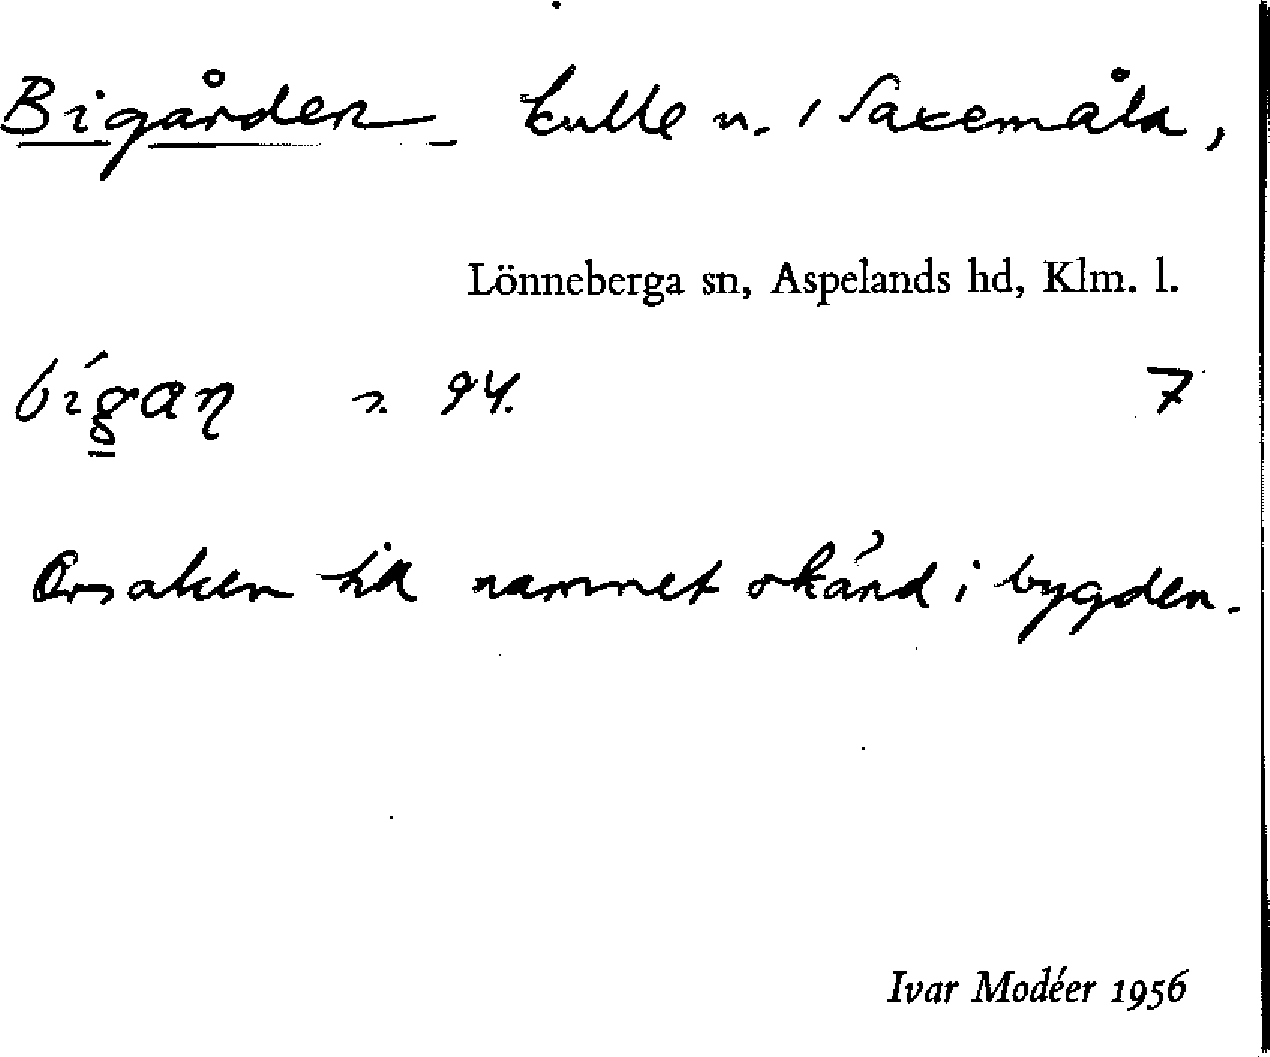 Bigården kulle n. i Saxemåla,
Lönneberga sn, Aspelands hd, Klm. l.
bígaꞃ 94. 7
Orsaken till namnet okänd i bygden.
Ivar Modéer 1956